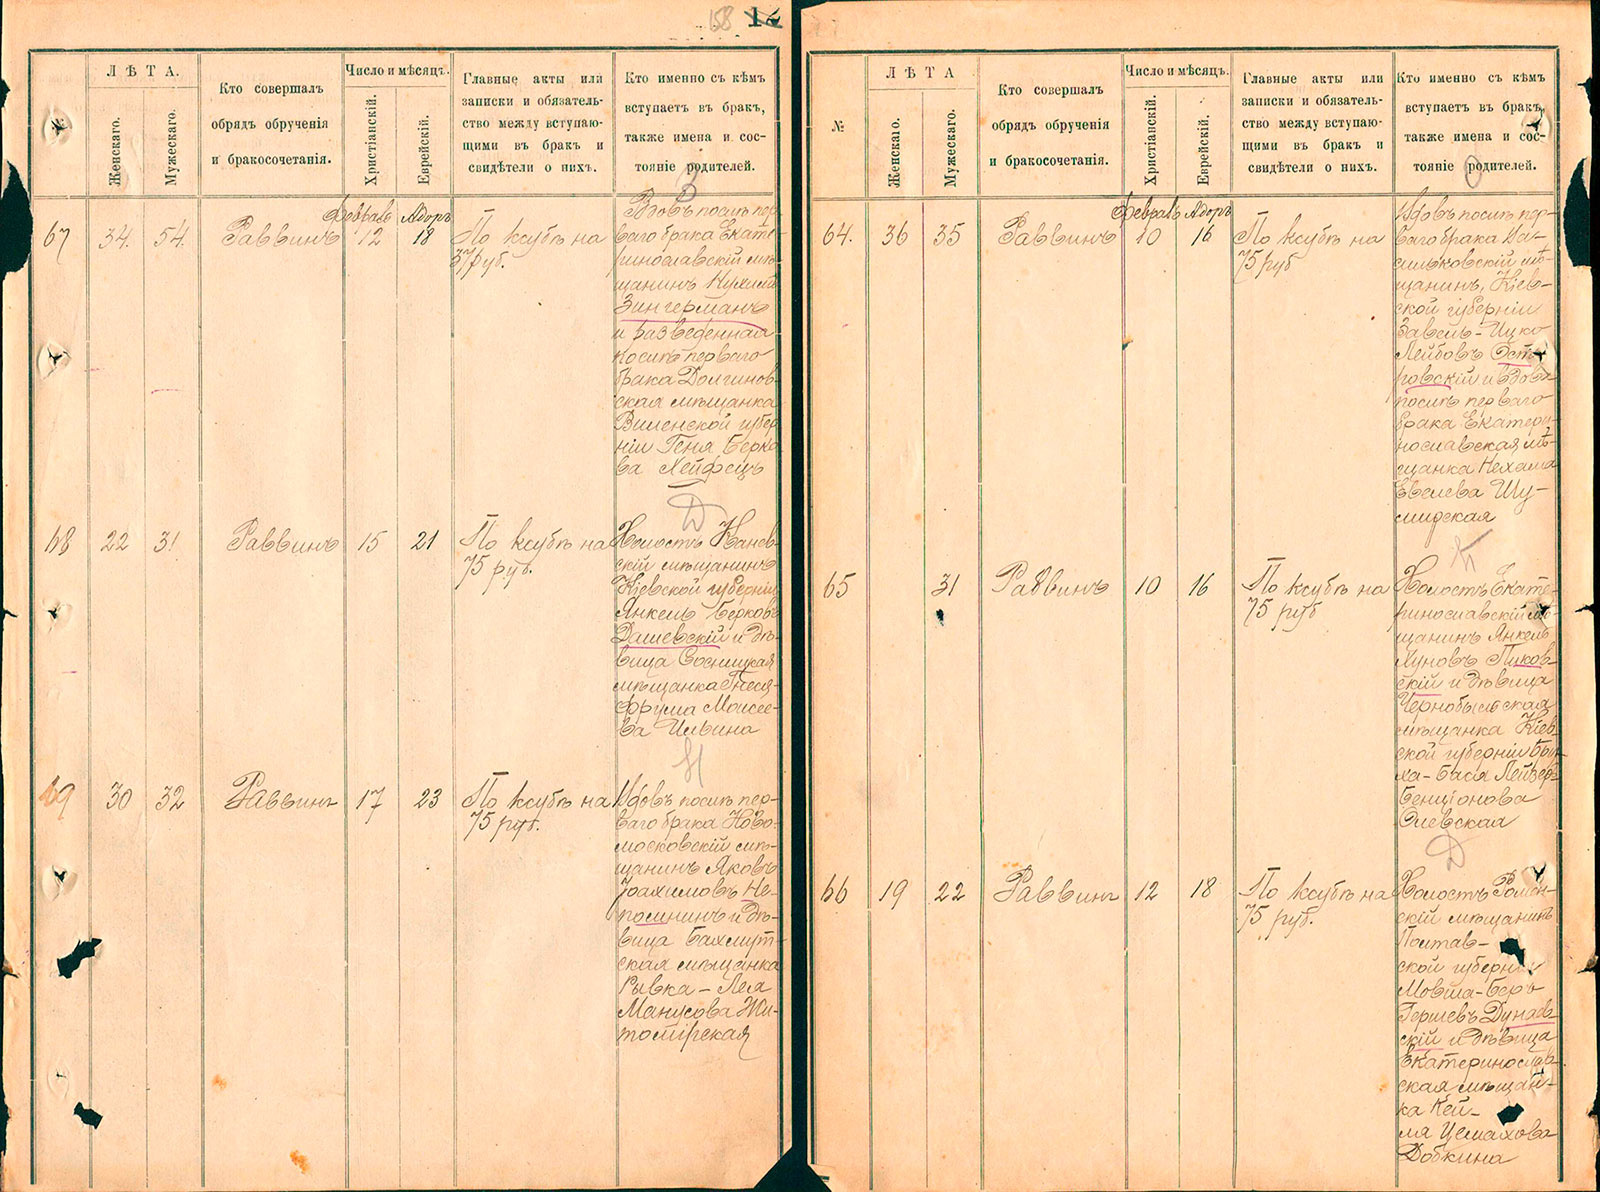 158
12
ЛѢТА.
Кто совершалъ
обрядъ обрученія
и бракосочетанія.
Число и мѣсяцъ.
Главные акты или
записки и обязатель-
ство между вступаю-
щими въ бракъ и
свидѣтели о нихъ.
Кто именно съ кѣмъ
вступаетъ въ бракъ,
также имена и сос-
тояніе родителей.
№
Женскаго.
Мужескаго.
Христіанскій.
Еврейскій.
З
67
34.
54.
Раввинъ
Февраль
12
Адоръ
18
По ксубѣ на
37 руб.
Вдовъ послѣ пер-
ваго брака Екате-
ринославскій мѣ-
щанинъ
Зингерманъ
и разведенная
послѣ перваго
брака Долгинов-
ская мѣщанка
Виленской губер
ніи Геня Берко
ва Хейфецъ
Д
68
22
31
Раввинъ
15
21
По ксубѣ на
75 руб.
Холостъ Канев-
скій мѣщанинъ
Кіевской губерніи
Янкель Берковъ
Дашевскій и дѣ-
вица Сосницкая
мѣщанка Гнеся-
Фрума Моисее-
ва Ильина
Н
69
30
32
Раввинъ
17
23
По ксубѣ на
75 руб.
Вдовъ послѣ пер-
ваго брака Ново-
московскій мѣ-
щанинъ Яковъ
Іоахимовъ Не-
помнинъ и дѣ-
вица Бахмут-
ская мѣщанка
Рывка-Лея
Манусова Жи-
томірская
ЛѢТА
Кто совершалъ
обрядъ обрученія
и бракосочетанія.
Число и мѣсяцъ.
Главные акты или
записки и обязатель-
ство между вступаю-
щими въ бракъ и
свидѣтели о нихъ.
Кто именно съ кѣмъ
вступаетъ въ бракъ,
также имена и сос-
тояніе родителей.
№
Женскаго.
Мужескаго.
Христіанскій.
Еврейскій.
О
64.
36
35
Раввинъ
Февраль
10
Адоръ
16
По ксубѣ на
75 руб
Вдовъ послѣ пер-
ваго брака Ва-
сильковскій мѣ-
щанинъ, Кіев-
ской губерніи
Завель-Ицко
Лейбовъ Ост-
ровскій и вдова
послѣ перваго
брака Екатери-
нославская мѣ-
щанка Нехама
Евелева Шу-
мидская
П
65
31
Раввинъ
10
16
По ксубѣ на
75 руб
Холостъ Екате-
ринославскій мѣ-
щанинъ Янкель
Нуновъ Пиков-
скій и дѣвица
Чернобыльская
мѣщанка Кіев
ской губерніи Бру-
ха-Бася Лейзеръ
Бенціонова
Олевская
Д
66
19
22
Раввинъ
12
18
По ксубѣ на
75 руб.
Холостъ Ромен-
скій мѣщанинъ
Полтав-
ской губерніи
Мовша-Беръ
Гершевъ Дунаев-
скій и дѣвица
Екатеринослав
ская мѣщан-
ка Кей-
ля Цемахова
Добкина